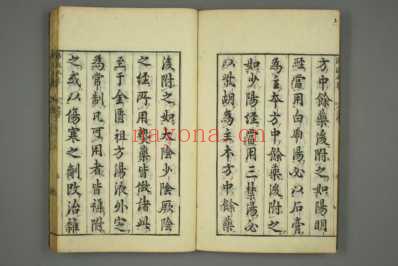 方中餘藥後附之如陽明
證當用白虎湯必以石膏
為主本方中餘藥後附之
如少陽證當用三禁湯必
以柴胡為主本方中餘藥
後附之如太陰少陰厥陰
之經所用熱藥皆倣諸此
至于金匱祖方湯液外定
為常制凡可用者皆雜附
之或以傷寒之劑改治雜
nayona.cn